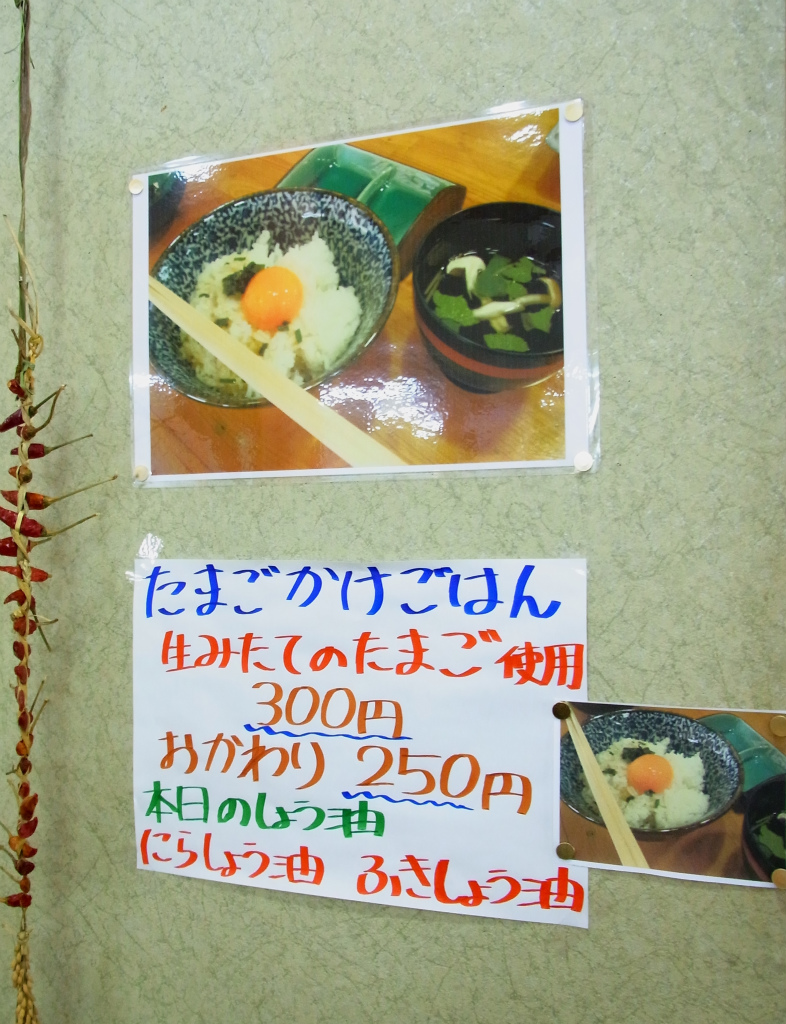 たまごかけごはん
生みたてのたまご使用
300円
おかわり 250円
本日のしょう油
にらしょう油 ふきしょう油